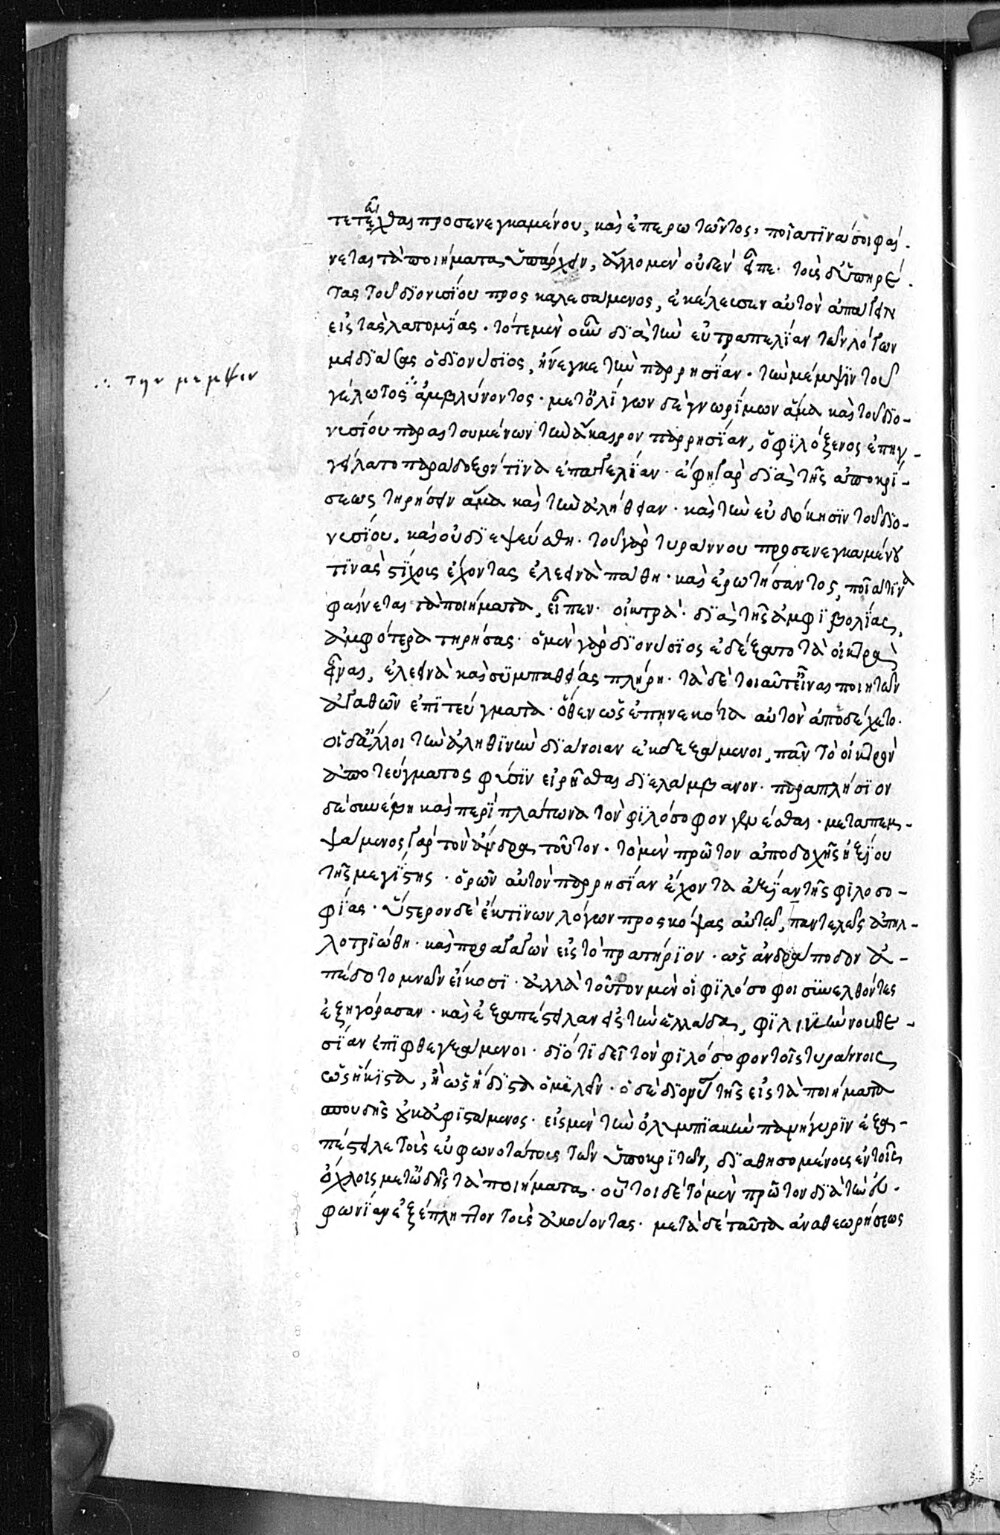 τετεῦχθαι προσενεγκαμένου, καὶ ἐπερωτῶντος, ποῖα τινά σοι φαί-
νεται τὰ ποιήματα ὑπάρχειν, ἄλλο μὲν οὐδὲν εἶπε· τοὺς δ' ὑπηρέ-
τας τοῦ διονυσίου προσκαλεσάμενος, ἐκέλευσεν αὐτὸν ἀπαγεῖν
εἰς τὰς λατομίας· τότε μὲν οὖν διὰ τὴν εὐτραπελίαν τῶν λόγων
μειδιάσας ὁ διονύσιος, ἤνεγκε τὴν παρρησίαν· τὴν μέμψιν τοῦ
∴ την μεμψιν
γέλωτος ∴ ἀμβλύνοντος· μετ' ὀλίγων δὲ γνωρίμων ἅμα καὶ τοῦ διο-
νυσίου παραιτουμένων τὴν ἄκαιρον παρρησίαν, ὁ φιλόξενος ἐπηγ-
γείλατο παράδοξόν τινα ἐπαγγελίαν· ἔφη γὰρ διὰ τῆς ἀποκρί-
σεως τηρήσειν ἅμα καὶ τὴν ἀλήθειαν· καὶ τὴν εὐδόκησιν τοῦ διο-
νυσίου. καὶ οὐ διεψεύσθη· τοῦ γὰρ τυράννου προσενεγκαμένου
τινὰς στίχους ἔχοντας ἐλεεινὰ πάθη· καὶ ἐρωτήσαντος, ποῖα τινὰ
φαίνεται τὰ ποιήματα, εἶπεν· οἰκτρά· διὰ τῆς ἀμφιβολίας,
ἀμφότερα τηρήσας· ὁ μὲν γὰρ διονύσιος ἐδέξατο τὰ οἰκτρὰ
εἶναι, ἐλεεινὰ καὶ συμπαθείας πλήρη· τὰ δὲ τοιαῦτ' εἶναι ποιητῶν
ἀγαθῶν ἐπιτεύγματα· ὅθεν ὡς ἐπῃνεκότα αὐτὸν ἀπεδέχετο·
οἱ δ' ἄλλοι τὴν ἀληθινὴν διάνοιαν ἐκδεξάμενοι, πᾶν τὸ οἰκτρὸν
ἀποτεύγματος φύσιν εἰρῆσθαι διελάμβανον· παραπλήσιον
δὲ συνέβη καὶ περὶ πλάτωνα τὸν φιλόσοφον γενέσθαι· μεταπεμ-
ψάμενος γὰρ τὸν ἄνδρα τοῦτον· τὸ μὲν πρῶτον ἀποδοχῆς ἠξίου
τῆς μεγίστης· ὁρῶν αὐτὸν παρρησίαν ἔχοντα ἀξίαν τῆς φιλοσο-
φίας· ὕστερον δὲ ἔκ τινων λόγων προσκόψας αὐτῷ, παντελῶς ἀπηλ-
λοτριώθη· καὶ προαγαγὼν εἰς τὸ πρατήριον· ὡς ἀνδράποδον ἀ-
πέδοτο μνῶν εἴκοσι· ἀλλὰ τοῦτον μὲν οἱ φιλόσοφοι συνελθόντες
ἐξηγόρασαν· καὶ ἐξαπέστειλαν εἰς τὴν ἑλλάδα, φιλικὴν νουθε-
σίαν ἐπιφθεγξάμενοι· διότι δεῖ τὸν φιλόσοφον τοῖς τυράννοις
ὡς ἥκιστα, ἢ ὡς ἥδιστα ὁμιλεῖν· ὁ δὲ διονύσιος τῆς εἰς τὰ ποιήματα
σπουδῆς οὐκ ἀφιστάμενος· εἰς μὲν τὴν ὀλυμπιακὴν πανήγυριν ἐξα-
πέστειλε τοὺς εὐφωνοτάτους τῶν ὑποκριτῶν, διαθησομένους ἐν τοῖς
ὄχλοις μετ' ᾠδῆς τὰ ποιήματα· οὗτοι δὲ τὸ μὲν πρῶτον διὰ τὴν εὐ-
φωνίαν ἐξέπληττον τοὺς ἀκούοντας· μετὰ δὲ ταῦτα ἀναθεωρήσεως